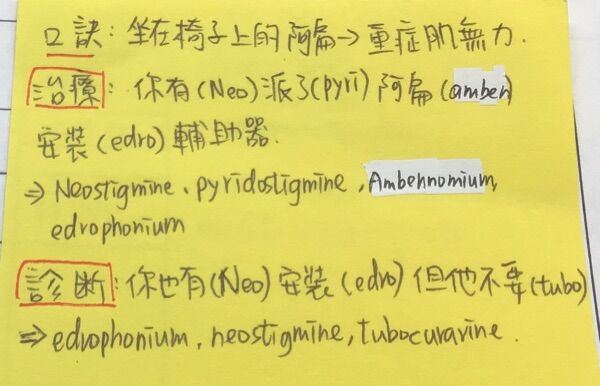 口訣：坐在椅子上的阿扁→重症肌無力.
治療：你有(Neo)派了(pyri)阿扁(amben)
安裝(edro)輔助器.
⇒ Neostigmine、pyridostigmine、Ambennomium,
edrophonium
診断：你也有(Neo)安裝(edro)但他不要(tubo)
⇒ edrophonium, neostigmine, tubocurarine.